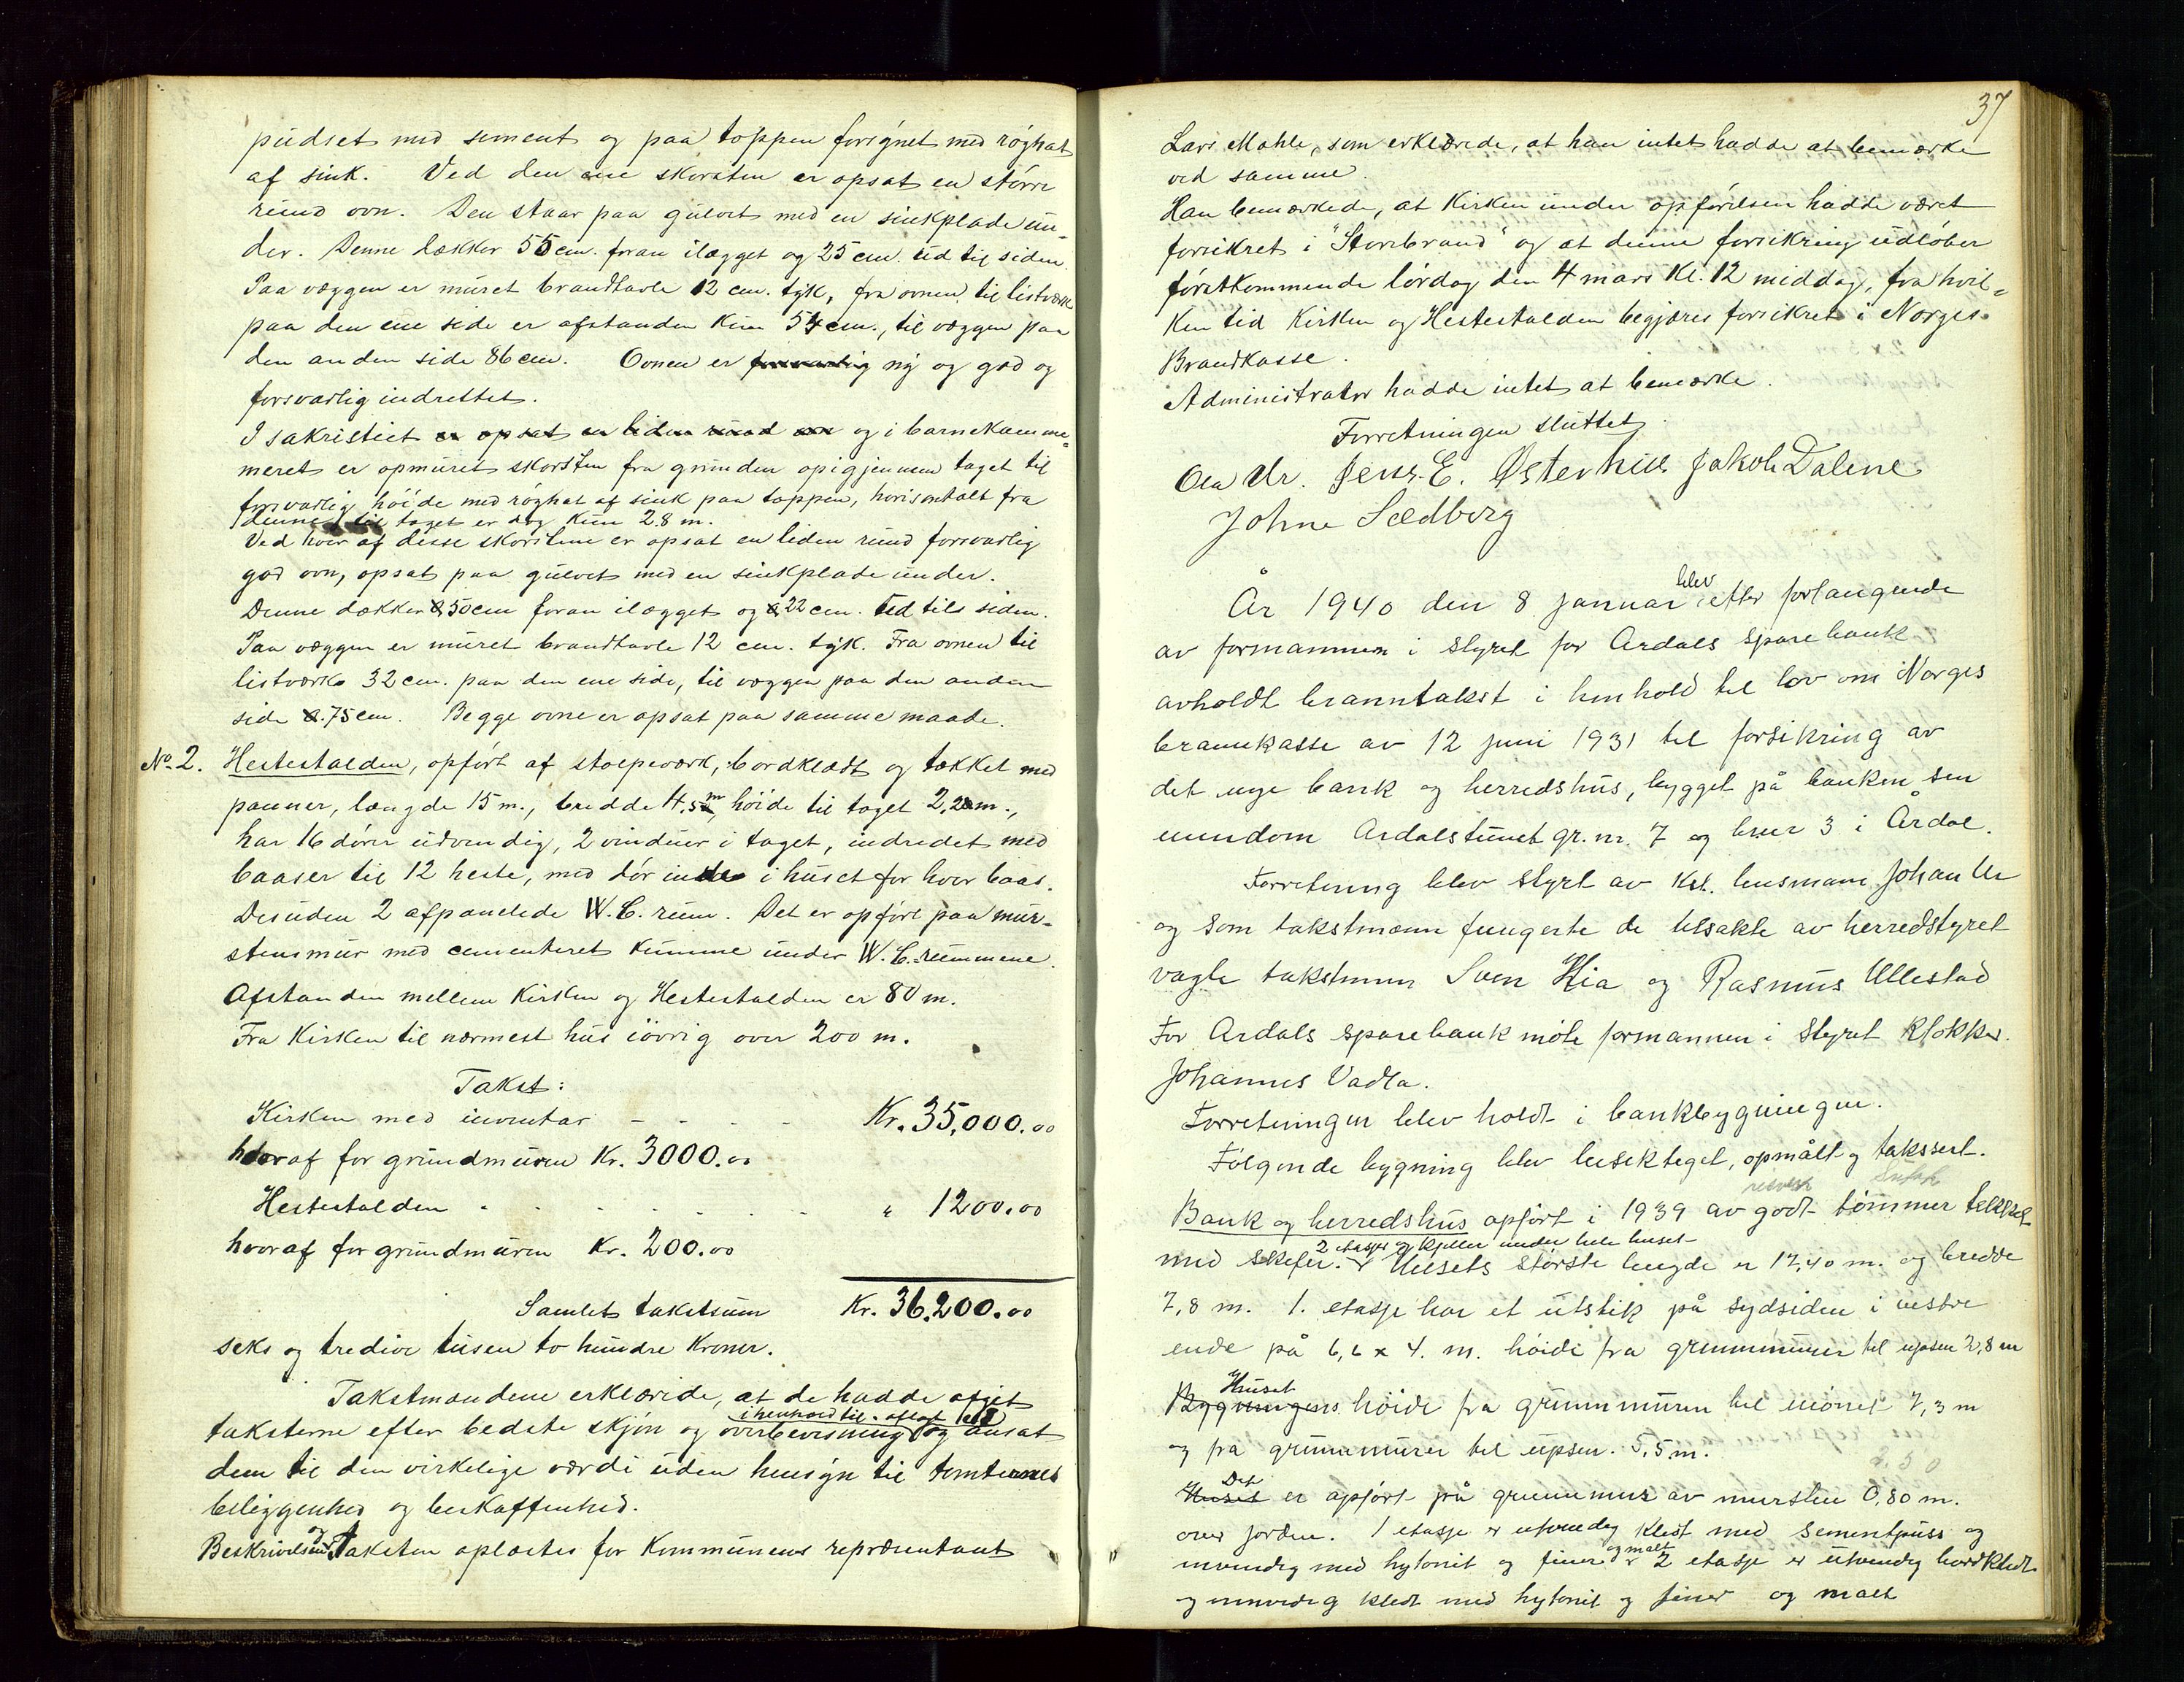 pudset med sement og paa toppen forsynet med røghat
af sink. Ved den ene skorsten er opsat en større
rund ovn. Den staar paa gulvet med en sinkplade un-
der. Denne dækker 55 cm. foran ilægget og 25 cm. ud til siden.
Paa væggen er muret brandtavle 12 cm. tyk, fra ovnen til listværk
paa den ene side er afstanden kun 54 cm., til væggen paa
den anden side 86 cm. Ovnen er forsvarlig ny og god og
forsvarlig indrettet.
I sakristiet er opsat en liden rund ovn og i barnekamme-
meret er opmuret skorsten fra grunden opigjennem taget til
forsvarlig høide med røghat af sink paa toppen, horisontalt fra
denne til taget er dog kun 2.8 m.
Ved hver af disse skorstene er opsat en liden rund forsvarlig
god ovn, opsat paa gulvet med en sinkplade under.
Denne dækker 50 cm foran ilægget og 22 cm. ud tils siden.
Paa væggen er muret brandtavle 12 cm. tyk. Fra ovnen til
listværk 32 cm. paa den ene side, til væggen paa den anden
side 75 cm. Begge ovne er opsat paa samme maade.
No. 2. Hestestalden, opført af stolpeværk, bordklædt og tækket med
panner, længde 15 m., bredde 4.5 m, høide til taget 2,20 m.,
har 16 dører udvendig, 2 vinduer i taget, indredet med
baaser til 12 heste, med dør inde i huset for hver baas.
Desuden 2 afpanelede W.C. rum. Det er opført paa mur-
stensmur med cementeret kumme under W.C.-rummene.
Afstanden mellem Kirken og Hestestalden er 80 m.
Fra Kirken til nærmest hus iøvrig over 200 m.
Takst:
Kirken med inventar - - - - Kr. 35,000.00
hvoraf for grundmuren Kr. 3000.00
Hestestalden - - - - - - " 1200.00
hvoraf for grundmuren Kr. 200.00
Samlet takstsum Kr. 36.200.00
seks og tredive tusen to hundre Kroner.
Takstmændene erklærede, at de hadde afgit
i henhold til aflagt ed
taksterne efter bedste skjøn og overbevisning og ansat
dem til den virkelige værdi uden hensyn til tomternes
beliggenhed og beskaffenhed.
Beskrivelsen og Taksten oplæstes for Kommunens repræsentant
37
Lars Mæhle, som erklærede, at han intet hadde at bemærke
ved samme.
Han bemærkede, at Kirken under opførelsen hadde været
forsikret i "Storebrand" og at denne forsikring udløber
førstkommende lørdag den 4 mars Kl. 12 middag, fra hvil-
ken tid Kirken og Hestestalden begjæres forsikret i Norges
Brandkasse.
Administrator hadde intet at bemærke.
Forretningen sluttet.
Ola Ur. Jens. E. Østerhus Jakob Dalene
Johne Sædberg
År 1940 den 8 januar blev efter forlangende
av formannen i styret for Årdals sparebank
avholdt branntakst i henhold til lov om Norges
brannkasse av 12 juni 1931 til forsikring av
det nye bank og herredshus, bygget på banken sin
eiendom Årdalstunet gr. nr. 7 og bnr 3 i Årdal.
Forretning blev styrt av kst. lensmann Johan Ur
og som takstmenn fungerte de tilsakte av herredstyret
valgte takstmenn Sven Hia og Rasmus Ullestad
For Årdals sparebank møte formannen i styret Klokker
Johannes Vadla.
Forretningen blev holdt i bankbygningen.
Følgende bygning blev besiktiget, opmålt og taksert.
Bank og herredshus opført i 1939 av godt tømmer tekket
2 etasjer og kjeller under hele huset
med skifer. Husets største lengde er 12,40 m. og bredde
7,8 m. 1. etasje har et utstikk på sydsiden i vestre
ende på 6,6 x 4. m. høide fra grunnmuren til upsen 2,8 m
Huset
Bygningens høide fra grunnmuren til mønet 7,3 m
og fra grunnmuren til upsen. 5,5 m.
Det
Huset er opført på grunnmur av mursten 0,80 m.
over jorden. 1 etasje er utvendig kledt med sementpuss og
og malt
innvendig med hytonit og finer 2 etasje er utvendig bordkledt
og innvendig kledt med hytonit og finer og malt